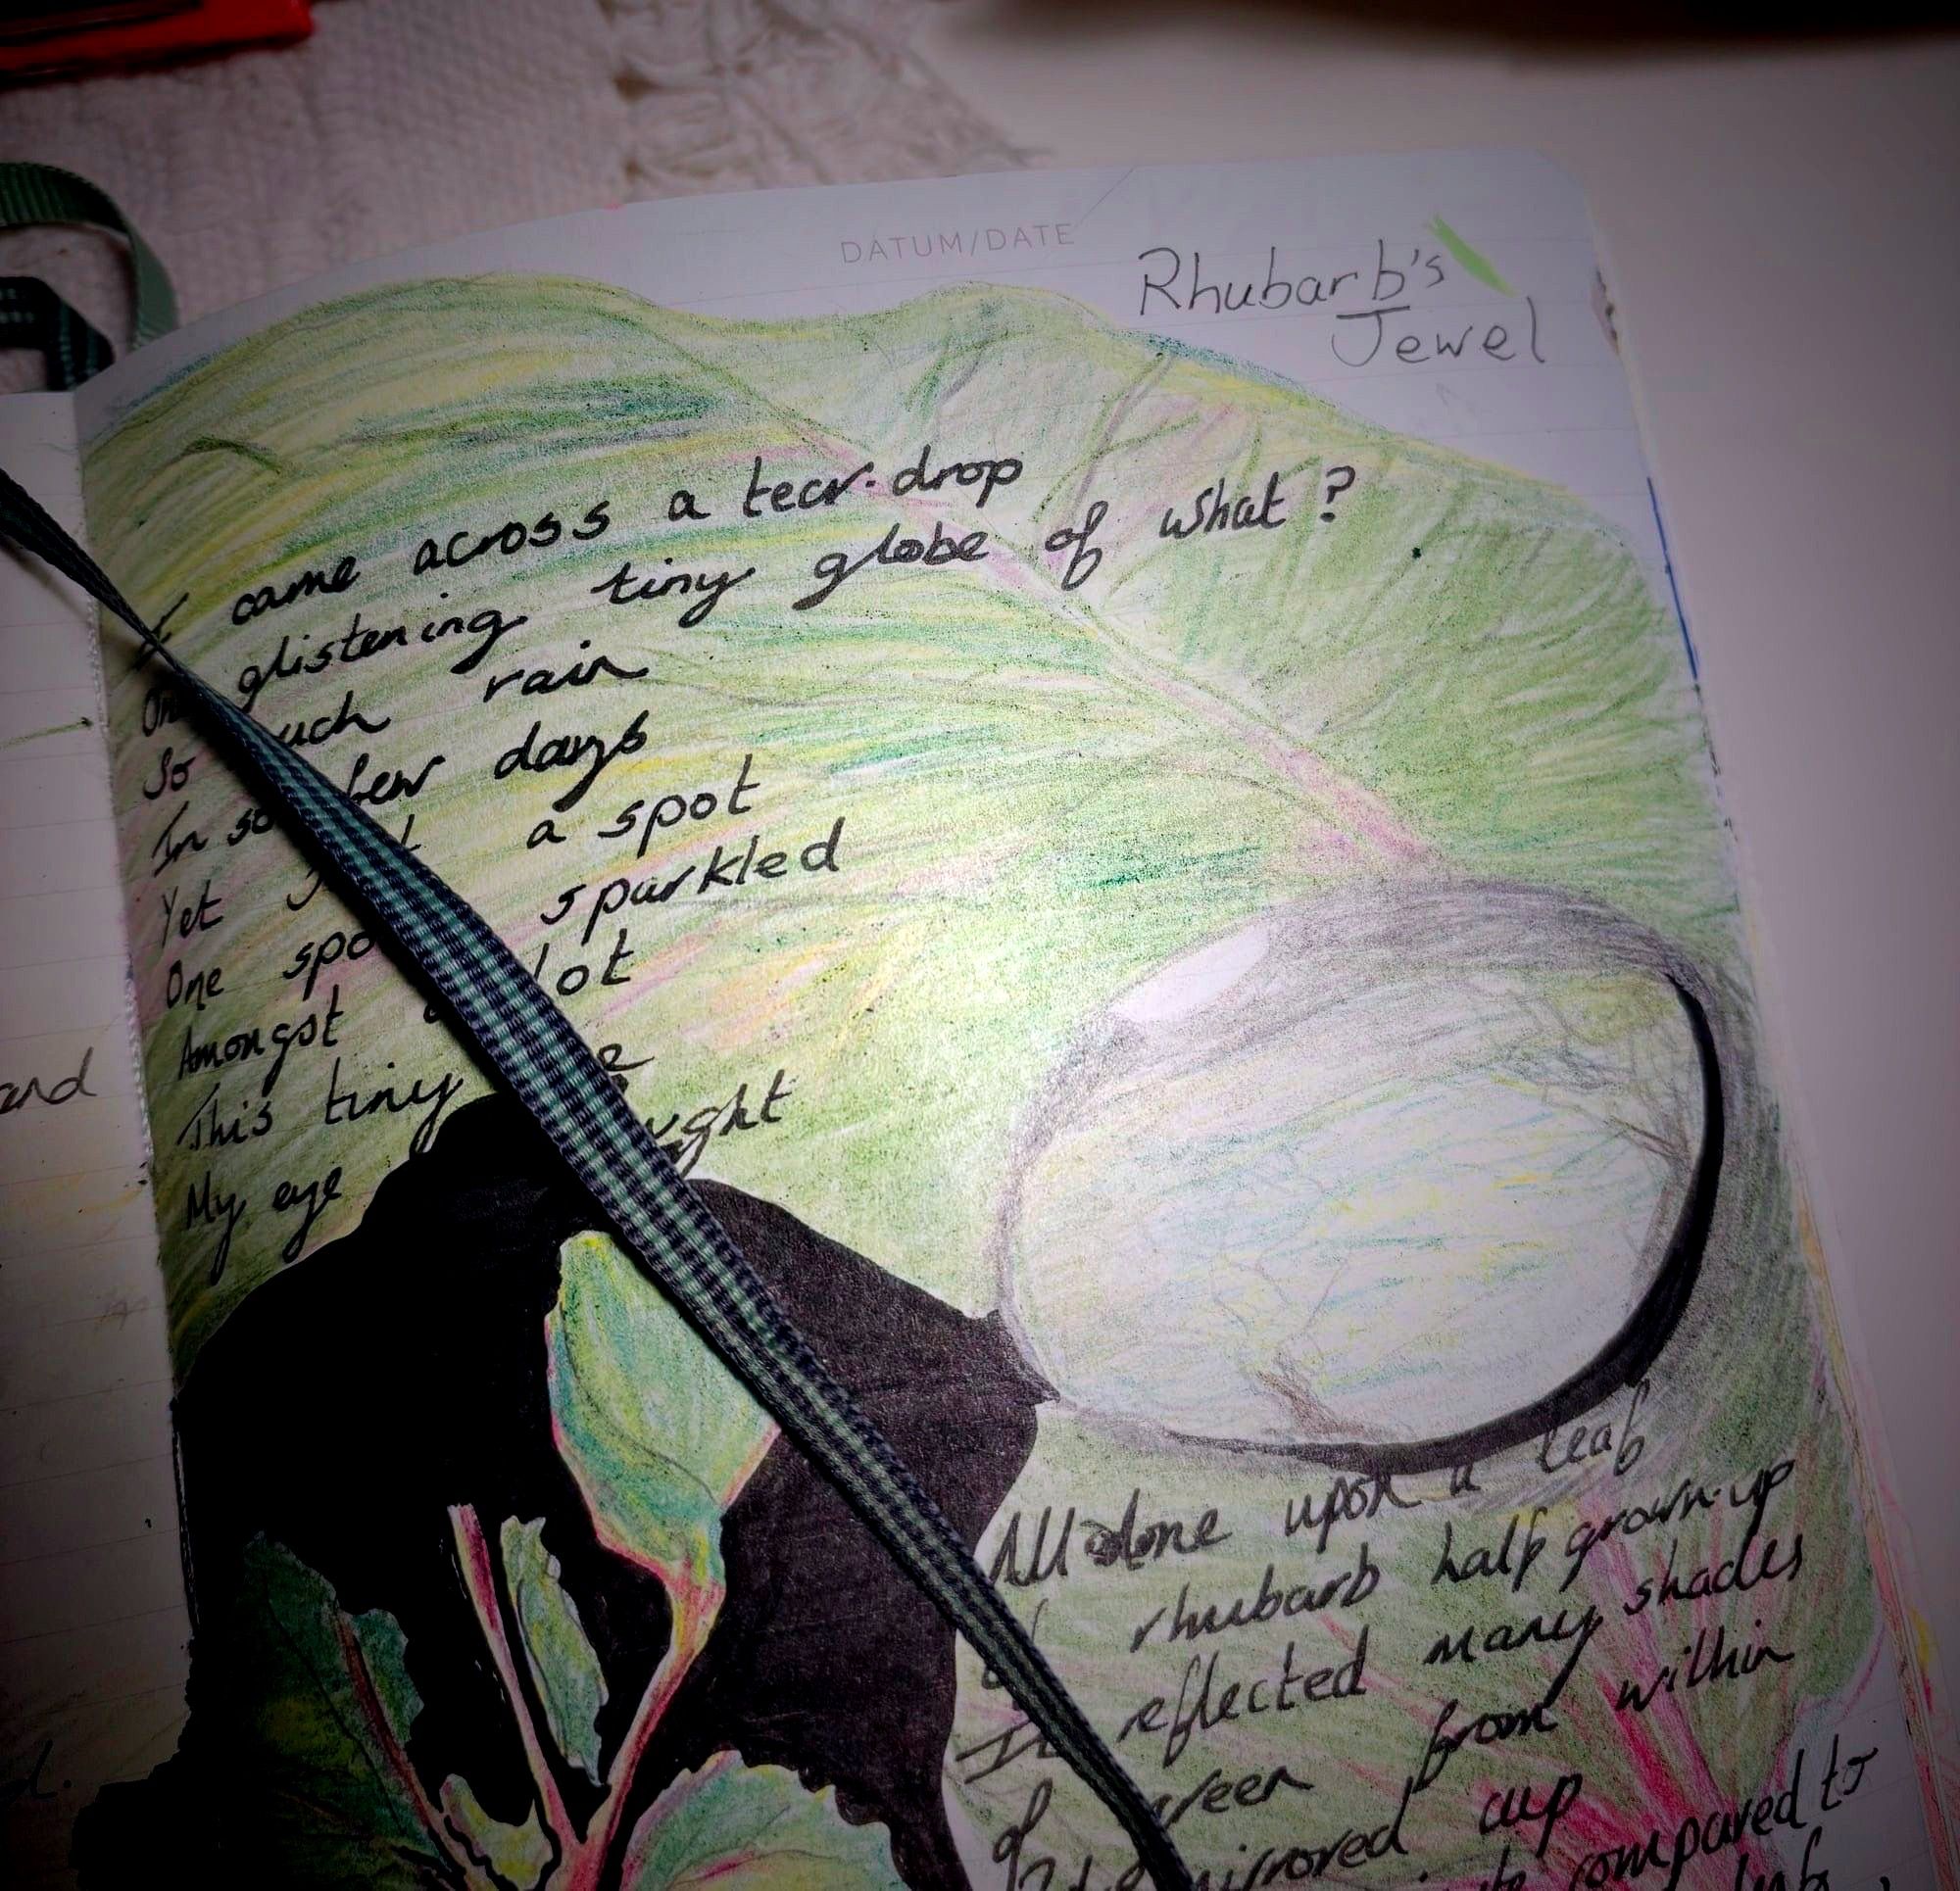 DATUM/DATE
Rhubarb's
Jewel
I came across a tear-drop
One glistening tiny globe of what?
So much rain
In so few days
Yet just a spot
One spot sparkled
Amongst a lot
This tiny
My eye
All alone upon a leaf
of rhubarb half grown-up
It reflected many shades
of green from within
mirrored cup
compared to
leaf,
and
d.